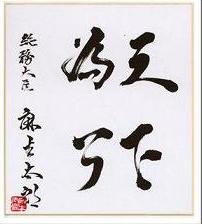 天下
為公
総務大臣
麻生太郎